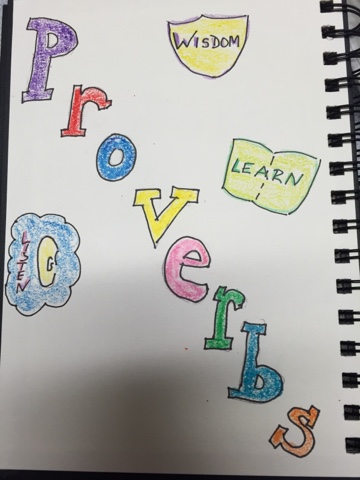 WISDOM
Proverbs
LEARN
LISTEN